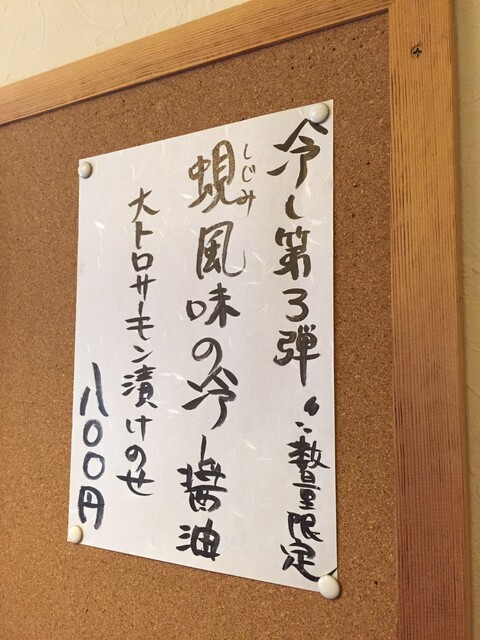 冷し第3弾 数量限定
蜆風味の冷し醤油
しじみ
大トロサーモン漬けのせ
八〇〇円